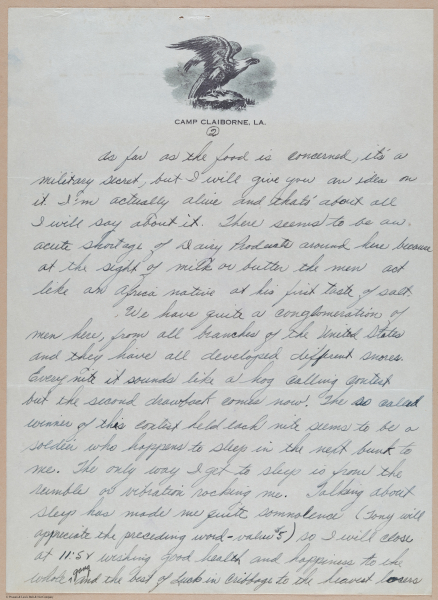 CAMP CLAIBORNE, LA.
2
As far as the food is concerned, it's a
military secret, but I will give you an idea on
it. I'm actually alive and thats' about all
I will say about it. There seems to be an
acute shortage of Dairy Products around here because
at the sight of milk or butter the men act
like an Africa native at his first taste of salt.
We have quite a conglomeration of
men here, from all branches of the United States
and they have all developed different snores.
Every nite it sounds like a hog calling contest
but the second drawback comes now! The so called
winner of this contest held each nite seems to be a
soldier who happens to sleep in the next bunk to
me. The only way I get to sleep is from the
rumble or vibration rocking me. Talking about
sleep has made me quite somnolence (Tony will
appreciate the preceding word - value 5) so I will close
at 11:52 wishing good health and happiness to the
whole gang and the best of luck in cribbage to the heaviest losers